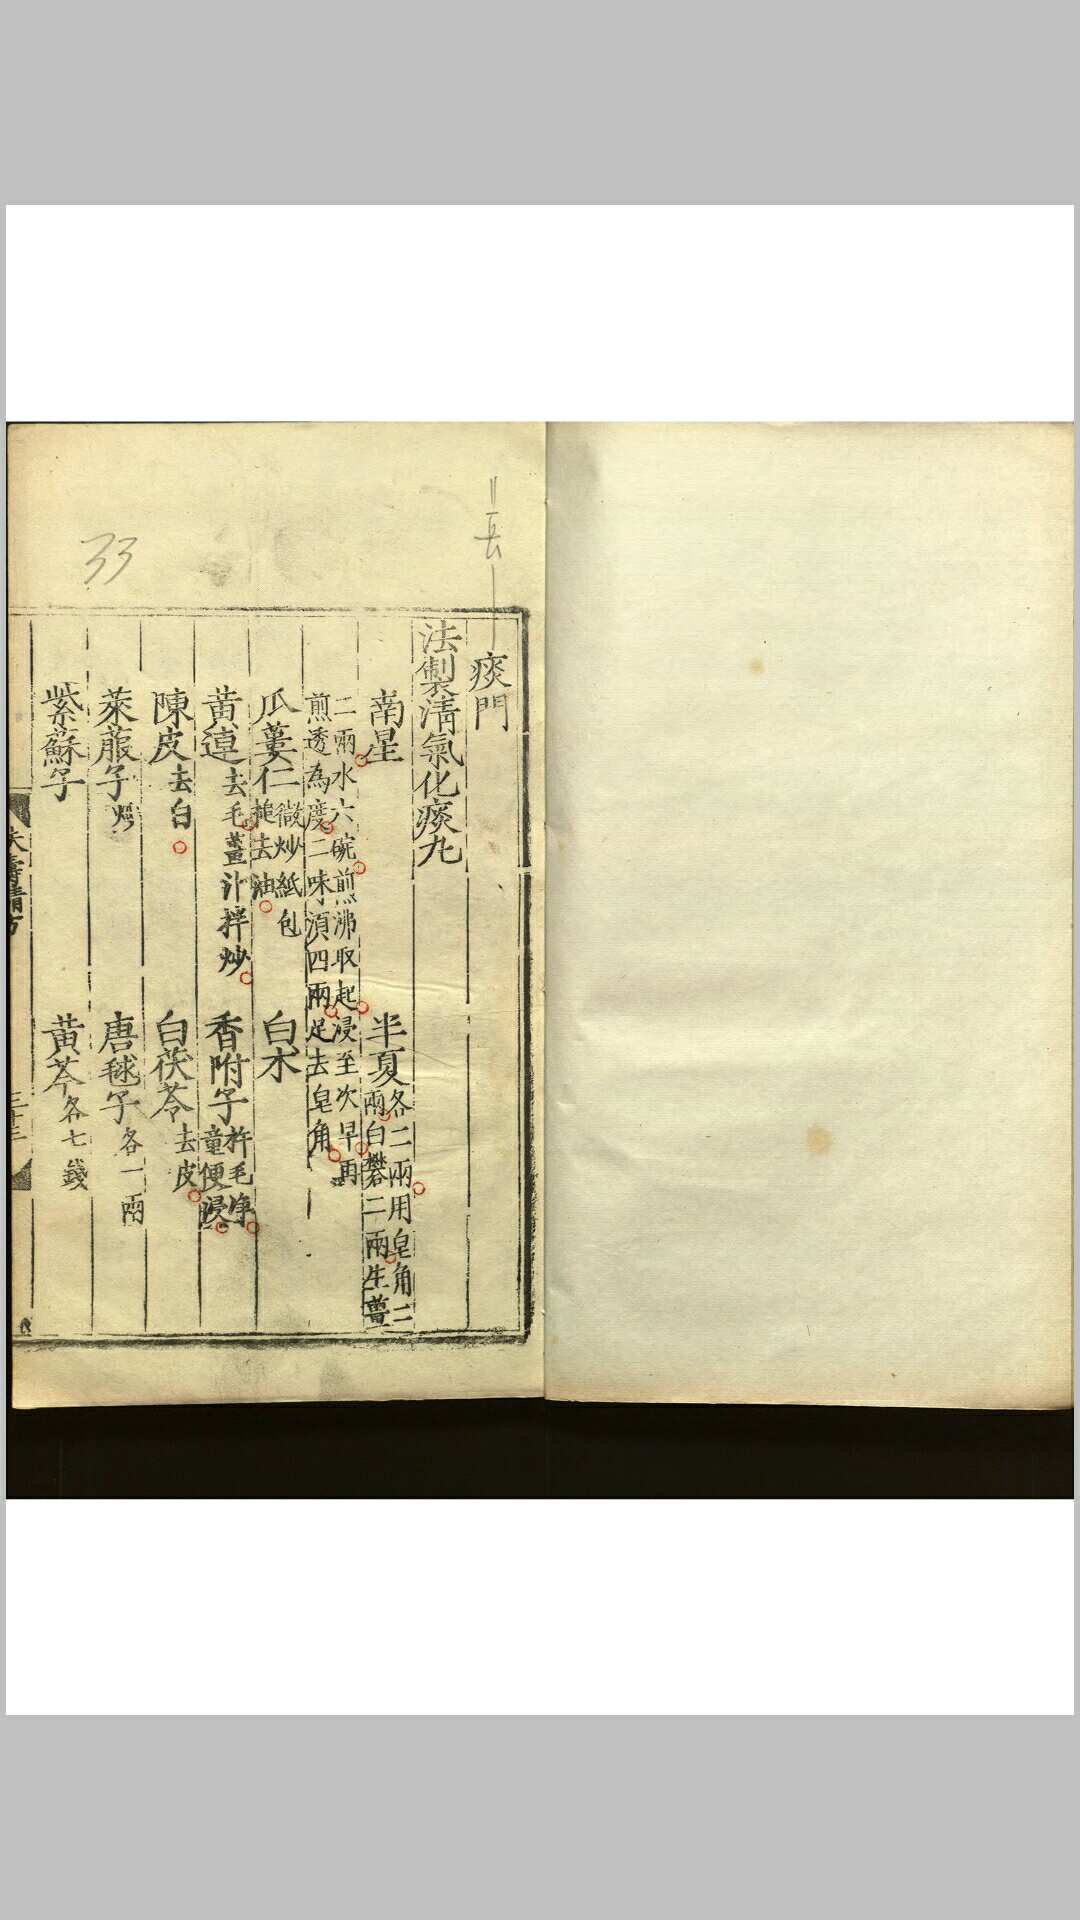 痰門
法製清氣化痰丸
南星
半夏各二兩用皂角二
兩白礬二兩生薑
二兩水六碗煎沸取起浸至次早再
煎透為度二味湏四兩足去皂角
瓜蔞仁微炒紙包
搥去油
白朮
黃連去毛薑汁拌炒
香附子杵毛淨
童便浸
陳皮去白
白茯苓去皮
萊菔子炒
唐毬子各一兩
紫蘇子
黃芩各七錢
壽精方
三十三
33